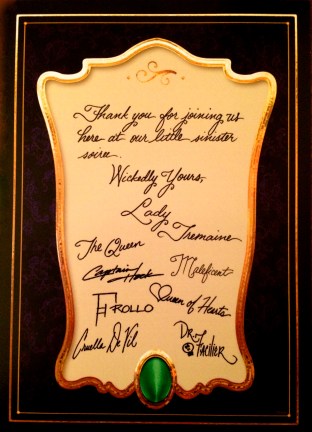 Thank you for joining us
here at our little sinister
soiree.
Wickedly Yours,
Lady
Tremaine
The Queen
Captain Hook
Maleficent
FROLLO
Queen of Hearts
Cruella De Vil
Dr.
Facilier